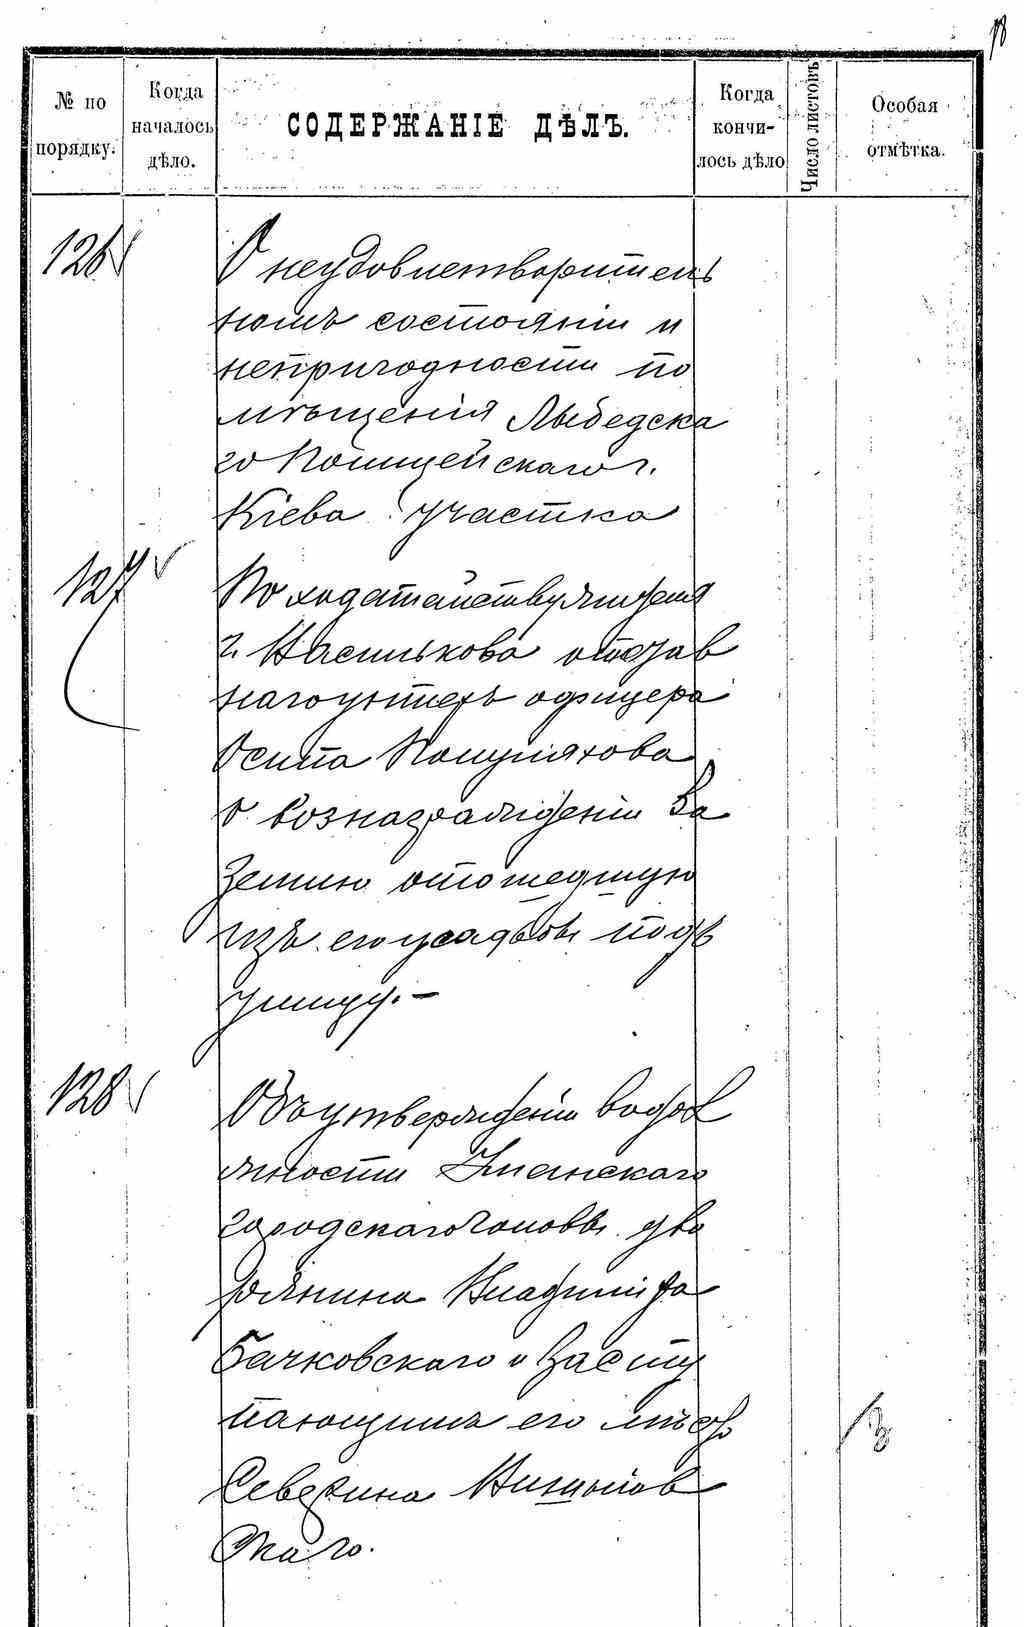 18
№ по порядку.
Когда началось дѣло.
СОДЕРЖАНІЕ ДѢЛЪ.
Когда кончилось дѣло
Число листовъ
Особая отмѣтка.
126
О неудовлетворитель
номъ состояніи и
непригодности по
мѣщенія Лыбедска
го Полицейскаго г.
Кіева участка
127
По ходатайству жителя
г. Василькова отстав
наго унтеръ офицера
Осипа Полуляхова
о вознагражденіи за
землю отошедшую
изъ его усадьбы подъ
улицу.-
128
Объ утвержденіи въ долж
жности Уманскаго
городскаго головы дво
рянина Владиміра
Бачковскаго и засту
пающимъ его мѣсто
Северина
скаго.